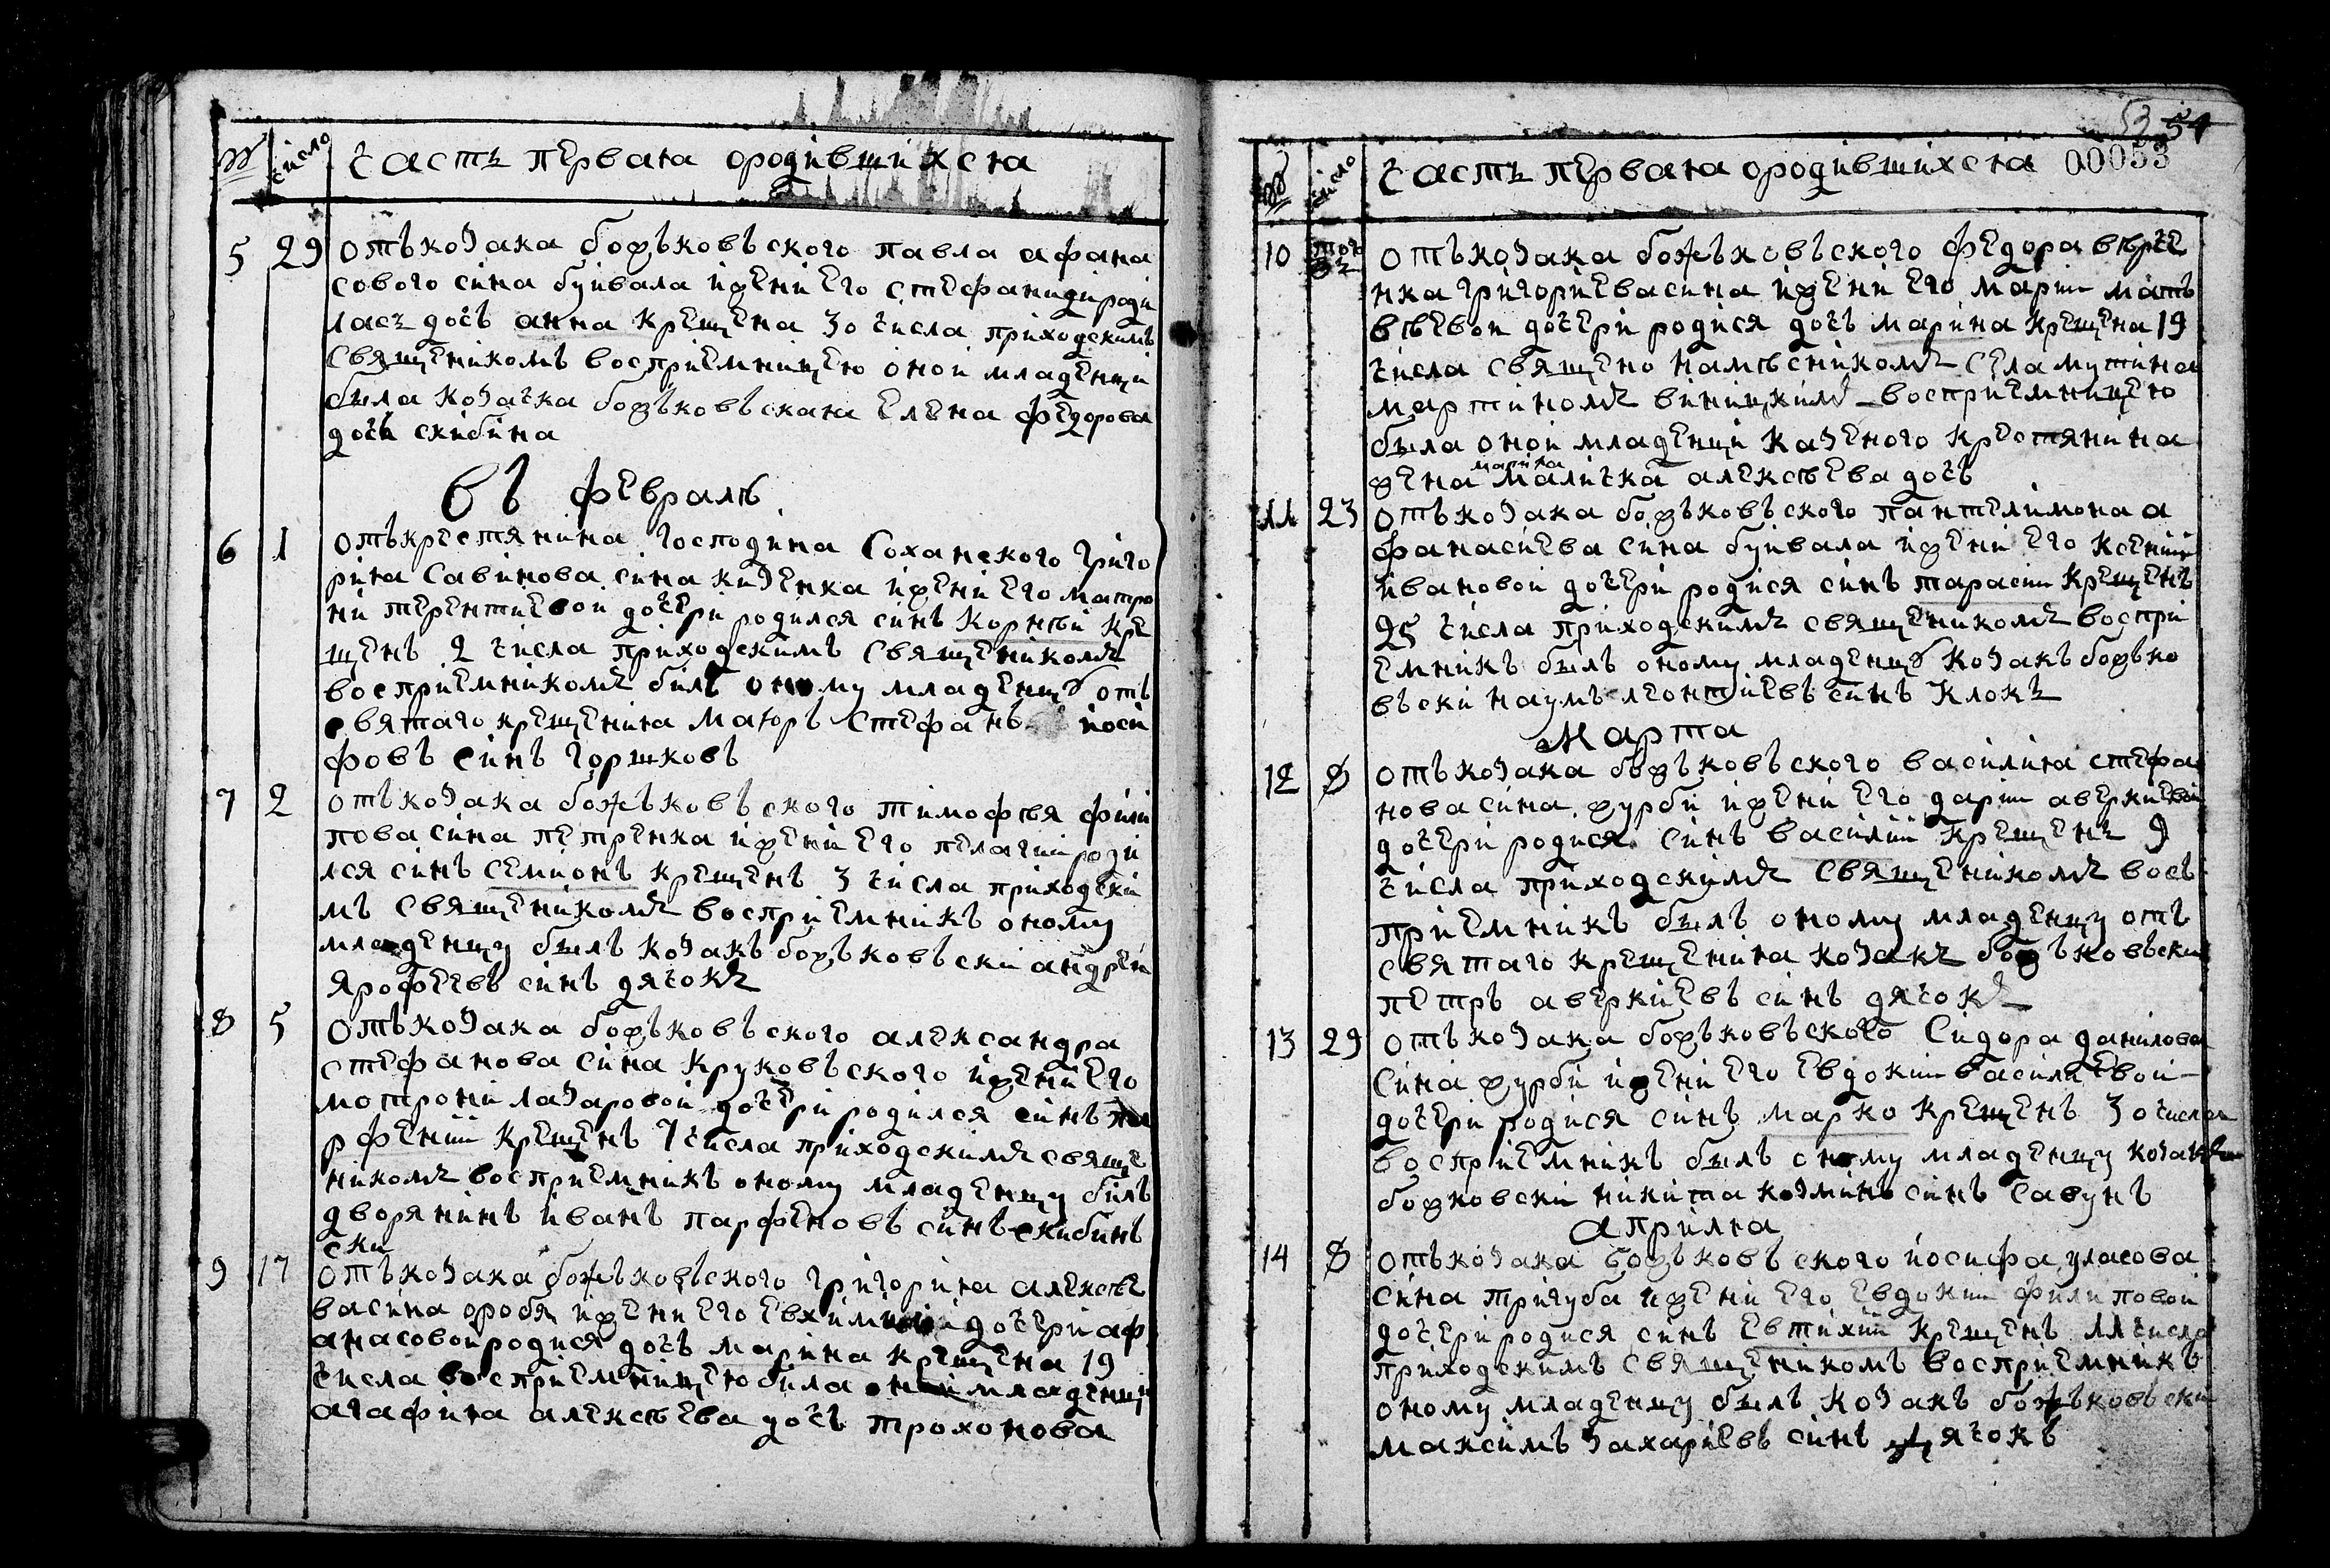 № число часть первая ородившихся
5 29 отъ козака божъковъского павла афана
сового сина буивала ижени его стефаниди роди
лась дочъ анна крещена 30 числа приходскимъ
священикомъ восприемницею оной младенци
была козачка божъковъская елена федорова
дочъ скибина
въ февралѣ
6 1 отъ крестянина господина Соханского григо
рия савинова сина кизенка ижени его матро
ни терентиевой дочери родился синъ корнѣй кре
щенъ 2 числа приходскимъ священикомъ
восприемникомъ билъ оному младенцу отъ
святаго крещения маиоръ стефанъ иоси
фовъ синъ горшковъ
7 2 отъ козака божъковъского тимофѣя фили
пова сина петренка ижени его пелагии роди
лся синъ семионъ крещенъ 3 числа приходски
мъ священикомъ восприемникъ оному
младенцу былъ козакъ божъковъски андрей
ярофеевъ синъ дячокъ
8 5 отъ козака божъковъского александра
стефанова сина круковъского ижени его
мотрони лазаровой дочери родился синъ па
рфений крещенъ 7 числа приходскимъ свяще
никомъ восприемникъ оному младенцу билъ
дворянинъ иванъ парфеновъ синъ скибинъ
ски
9 17 отъ козака божъковъского григория алексѣе
ва сина оробя ижени его евхимии дочери аф
анасовой родися дочъ марина крещена 19
числа восприемницею била оной младенци
агафия алексѣева дочъ трохонова
53 54
№ число часть первая ородившихся 00053
10 того отъ козака божъковъского федора
нка григориева сина ижени его марии матъ
вѣевой дочери родися дочъ марина крещена 19
числа священо намѣсникомъ села мутина
мартиномъ восприемницею
была оной младенци казеного крестянина
жена марина маличка алексѣева дочъ
11 23 отъ козака божъковъского пантелимона а
фанасиева сина буивала ижени его ксении
ивановой дочери родися синъ тарасии крещенъ
25 числа приходскимъ священикомъ воспри
емникъ былъ оному младенцу козакъ божъко
въски наумъ леонтиевъ синъ клокъ
марта
12 8 отъ козака божъковъского василия стефа
нова сина журби ижени его дарии аверкиевой
дочери родися синъ василий крещенъ 9
числа приходскимъ священикомъ восъ
приемникъ былъ оному младенцу отъ
святаго крещения козакъ божъковъски
петръ аверкиевъ синъ дячокъ
13 29 отъ козака божъковъского сидора данилова
сина журби ижени его евдокии василиевой
дочери родися синъ марко крещенъ 30 числа
восприемникъ былъ оному младенцу козакъ
божковски никита козминъ синъ савунъ
априля
14 8 отъ козака божъковъского иосифа уласова
сина тригуба ижени его евдокии филиповой
дочери родися синъ евтихий крещенъ 11 числа
приходскимъ священикомъ восприемникъ
оному младенцу былъ козакъ божъковъски
максимъ захариевъ синъ дячокъ